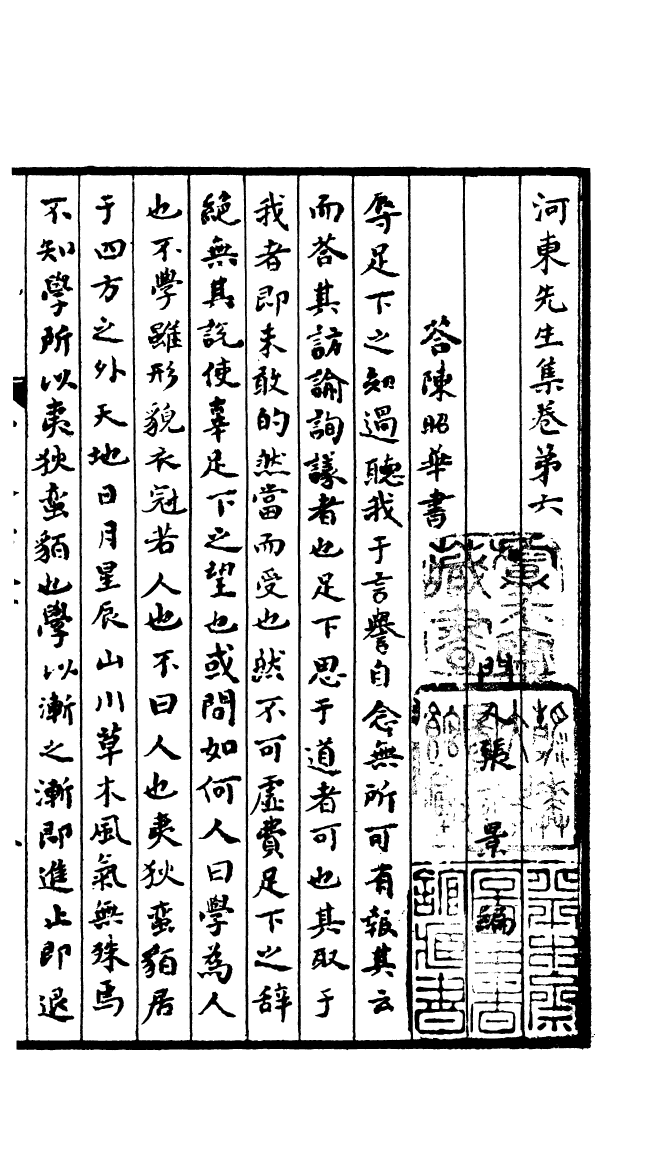 河東先生集卷第六
門人張景編
答陳昭華書
辱足下之知過聽我于言譽自念無所可有報其云
而荅其訪論詢議者也足下思于道者可也其取于
我者即未敢的然當而受也然不可虛費足下之辞
絕無其說使辜足下之望也或問如何人曰學為人
也不學雖形貌衣冠若人也不曰人也夷狄蠻貊居
于四方之外天地日月星辰山川草木風氣無殊焉
不知學所以夷狄蠻貊也學以漸之漸即進止即退